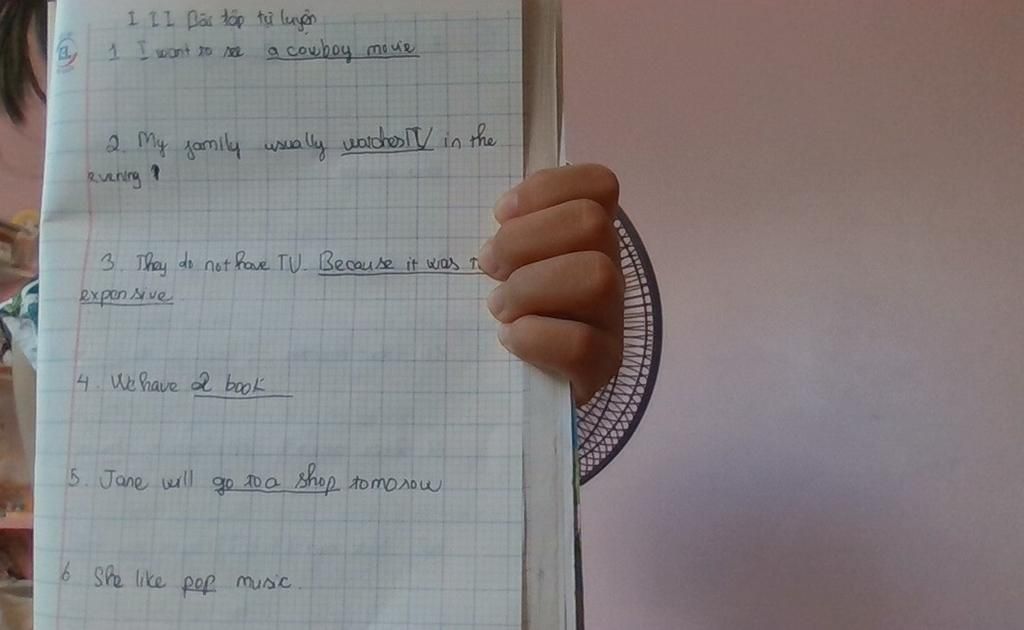 III Bài tập tự luyện
1 I want to see a cowboy movie
2. My family usually watchesTV in the
evening ?
3. They do not have TV. Because it was
expensive
4. We have 2 book
5. Jane will go to a shop tomorow
6 She like pop music.